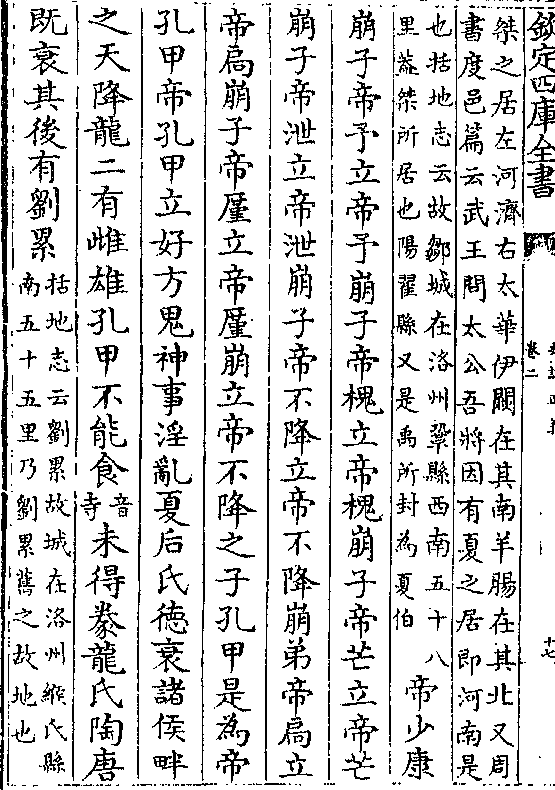 欽定四庫全書
卷二
十七
桀之居左河濟右太華伊闕在其南羊腸在其北又周
書度邑篇云武王問太公吾將因有夏之居即河南是
也括地志云故鄩城在洛州鞏縣西南五十八
里葢桀所居也陽翟縣又是禹所封為夏伯
帝少康
崩子帝予立帝予崩子帝槐立帝槐崩子帝芒立帝芒
崩子帝泄立帝泄崩子帝不降立帝不降崩弟帝扃立
帝扃崩子帝厪立帝厪崩立帝不降之子孔甲是為帝
孔甲帝孔甲立好方鬼神事淫亂夏后氏徳衰諸侯畔
之天降龍二有雌雄孔甲不能食
音
寺
未得豢龍氏陶唐
既衰其後有劉累
括地志云劉累故城在洛州緱氏縣
南五十五里乃劉累舊之故地也